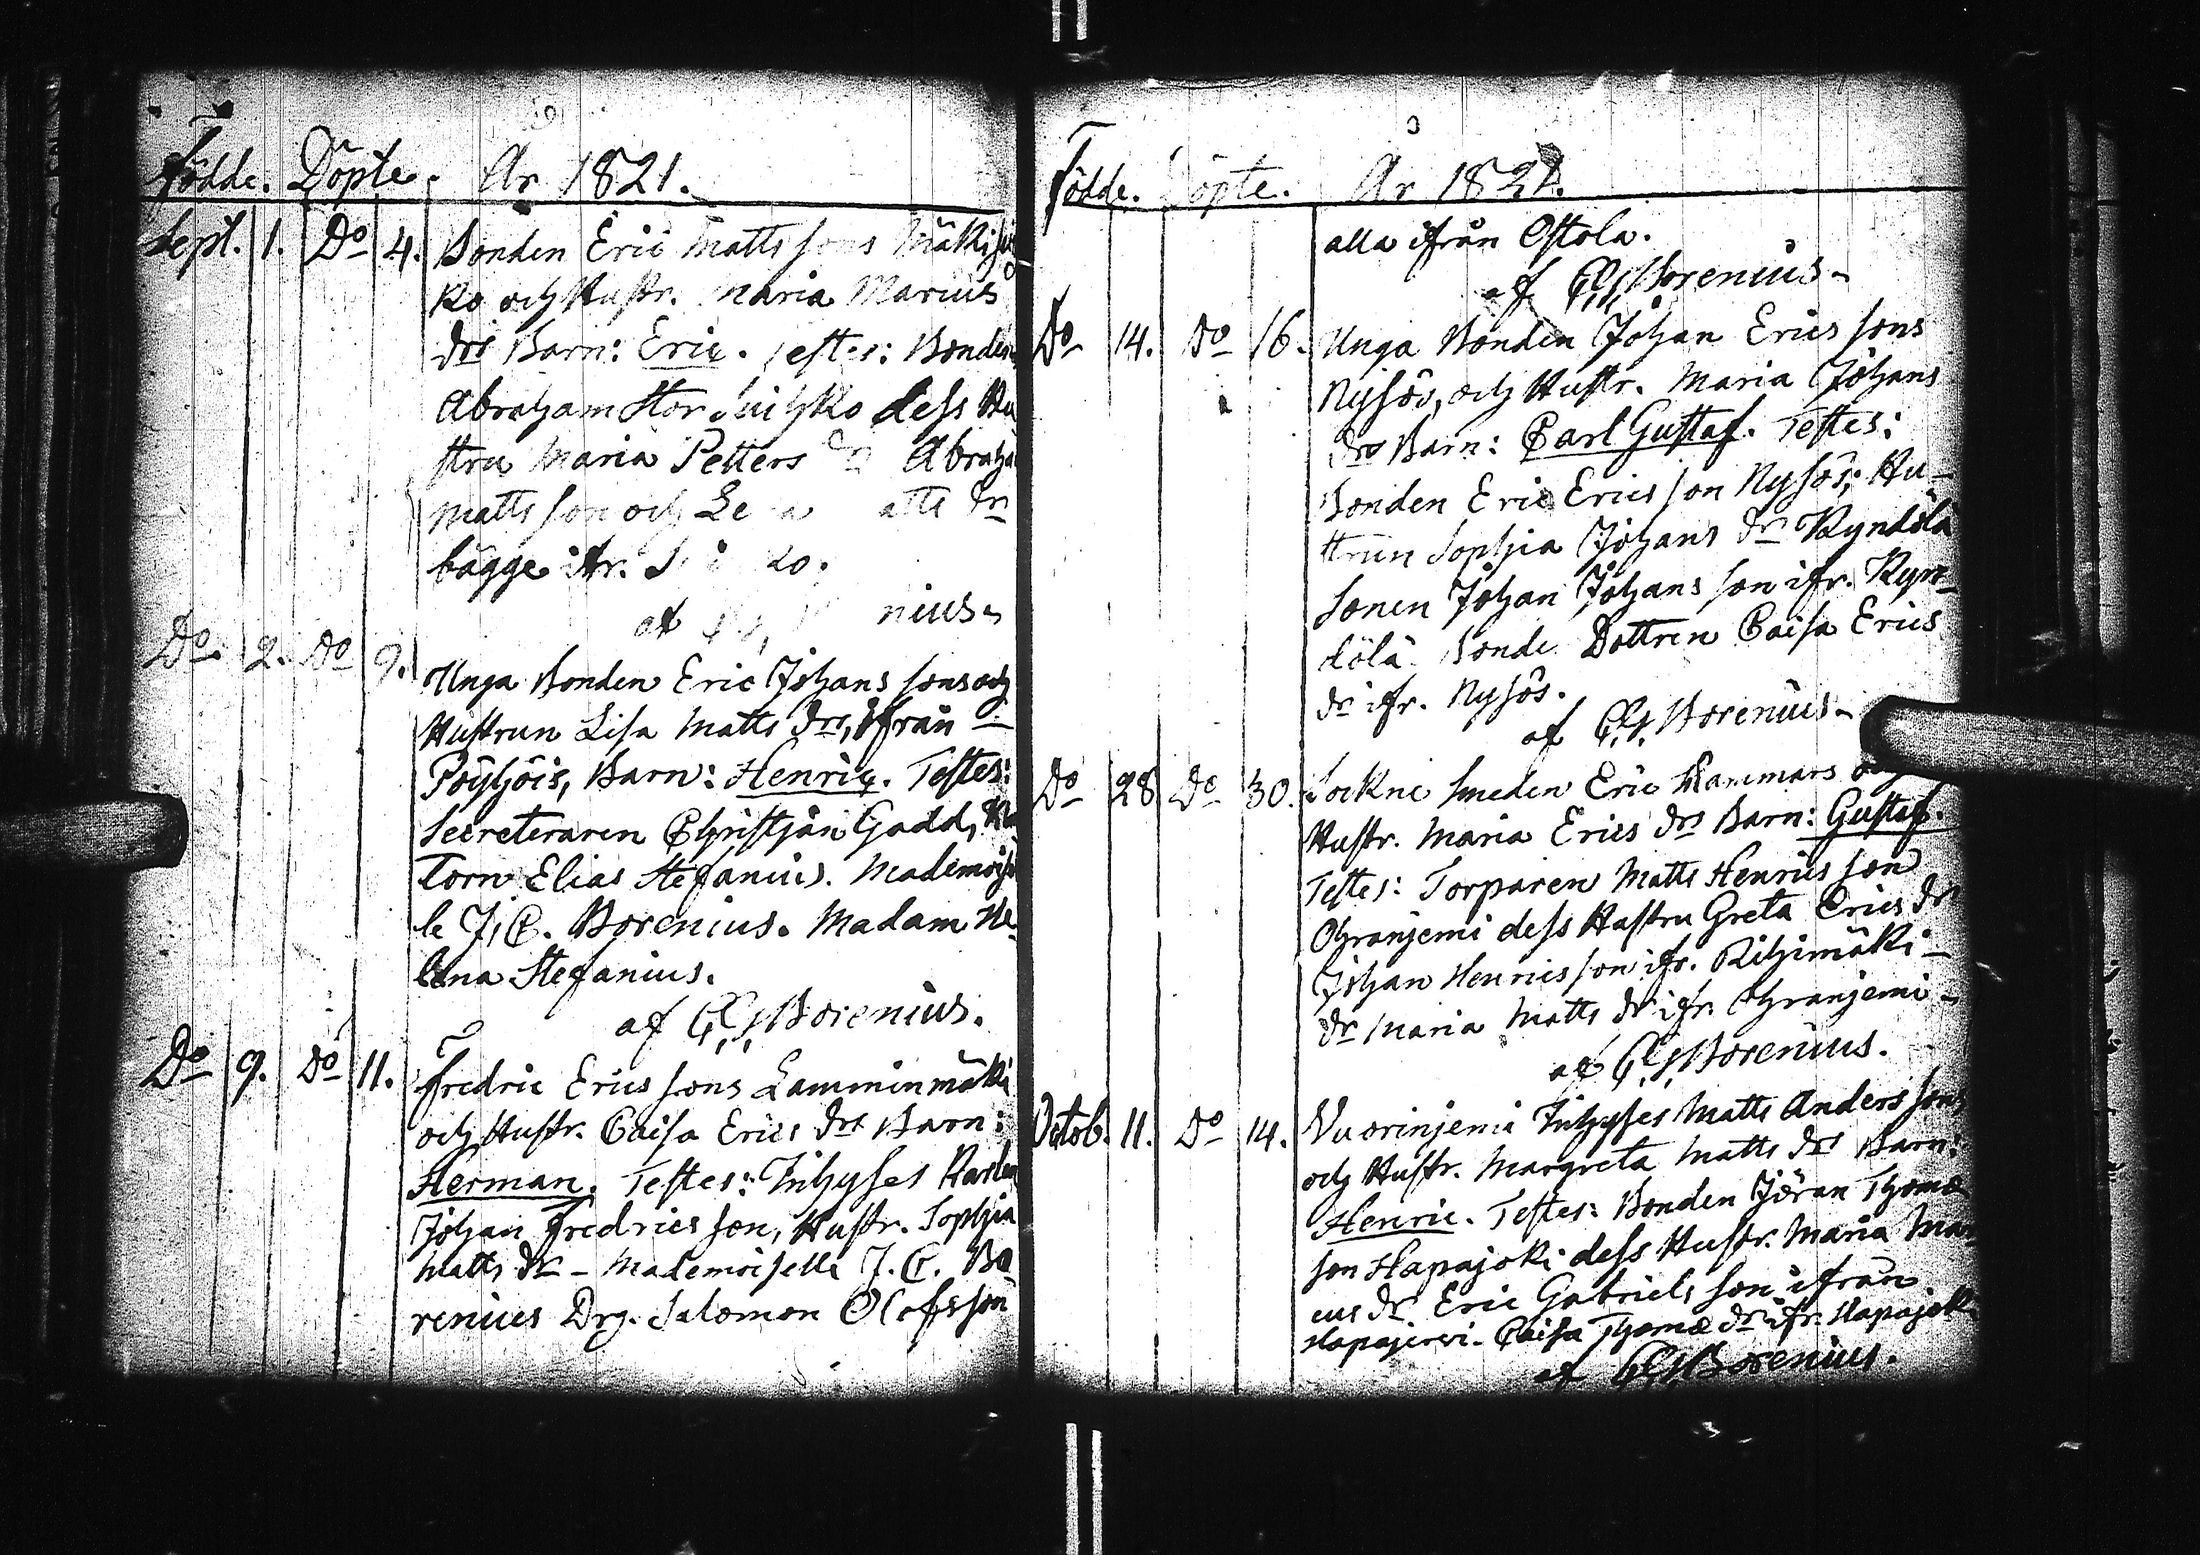 Födde. Döpte. År 1821.
Sept. 1. Do 4. Bonden Eric Matts sons Mäkisui
ko och Hustr. Maria Marcus
drs Barn: Eric. Testes: Bonden
Abraham Stor Suihko dess Hu
stru Maria Petters dr Abraha
Matts son och Le a atts dr
bägge ifr.
af nius
Do 2. Do 9. Unga Bonden Eric Johans sons och
Hustrun Lisa Matts drs, ifrån
Pöyhöis, Barn: Henric. Testes:
Secreteraren Christjän Gadd,
torn Elias Stefanius. Mademoise
le J. C. Borenius. Madam He
lena Stefanius.
af G. G. Borenius.
Do 9. Do 11. Fredric Erics sons Lamminmäki
och Hustr. Caisa Erics drs Barn:
Herman. Testes: Inhyses Karlen
Johan Fredrics son, Hustr. Sophia
Matts dr - Mademoiselle J. C. Bo
renius Drg. Salomon Olofsson
Födde. Döpte. År 1821.
alla ifrån Ostola.
af G. G. Borenius
Do 14. Do 16. Unga Bonden Johan Erics sons
Nysös, och Hustr. Maria Johans
drs Barn: Carl Gustaf. Testes:
Bonden Eric Erics son Nysös; Hu-
strun Sophia Johans dr Kyndölä
Sonen Johan Johans son ifr. Kyn-
dölä Bonde Dottren Caisa Erics
dr ifr. Nysös.
af G. G. Borenius
Do 28 Do 30. Sockne Smeden Eric Hammars och
Hustr. Maria Erics drs Barn: Gustaf.
Testes: Torparen Matts Henrics son
Ohranjemi dess Hustru Greta Erics dr
Johan Henrics son ifr. Riihimäki
dr Maria Matts dr ifr. Ohranjemi
af G. G. Borenius.
Octob. 11. Do 14. Vuorinjemi Inhyses Matts Anders sons
och Hustr. Margreta Matts drs Barn:
Henric. Testes: Bonden Jöran Thomæ
son Hapajoki dess Hustr. Maria Mar
cus dr Eric Gabriels son ifrån
Hapajervi. Caisa Thomæ dr ifr. Hapajoki
af G. G. Borenius.